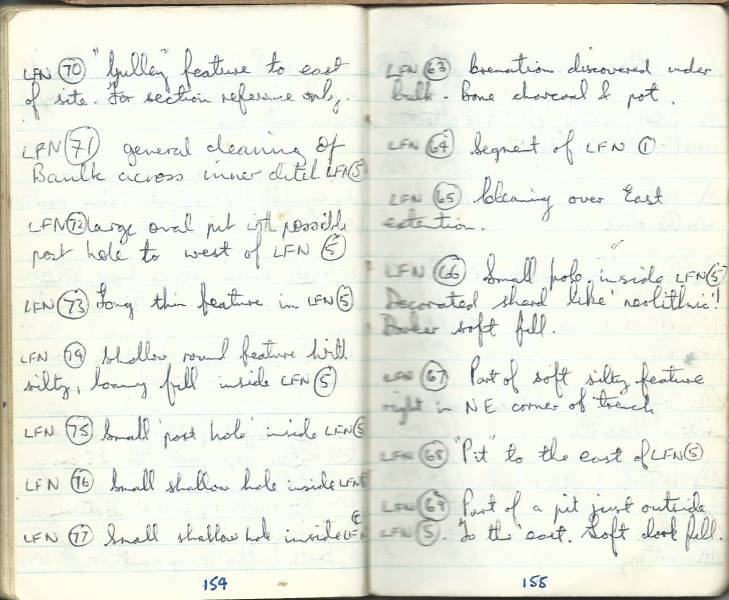 LFN 70 "Gulley" feature to east
of site. For section reference only.
LFN 71 general cleaning of
Baulk across inner ditch LFN 5
LFN 72 large oval pit with possible
post hole to west of LFN 5
LFN 73 Long thin feature in LFN 5
LFN 74 Shallow round feature with
silty, loamy fill inside LFN 5
LFN 75 Small 'post hole' inside LFN 5
LFN 76 Small shallow hole inside LFN 5
LFN 77 Small shallow hole inside LFN
154
LFN 63 Cremation discovered under
bulk - Bone charcoal & pot.
LFN 64 Segment of LFN 1
LFN 65 Cleaning over East
extention.
LFN 66 Small hole inside LFN 5
Decorated sherd like 'neolithic'!
Darker soft fill.
LFN 67 Part of soft silty feature
right in NE corner of trench
LFN 68 "Pit" to the east of LFN 5
LFN 69 Part of a pit just outside
LFN 5. To the east. Soft dark fill.
155